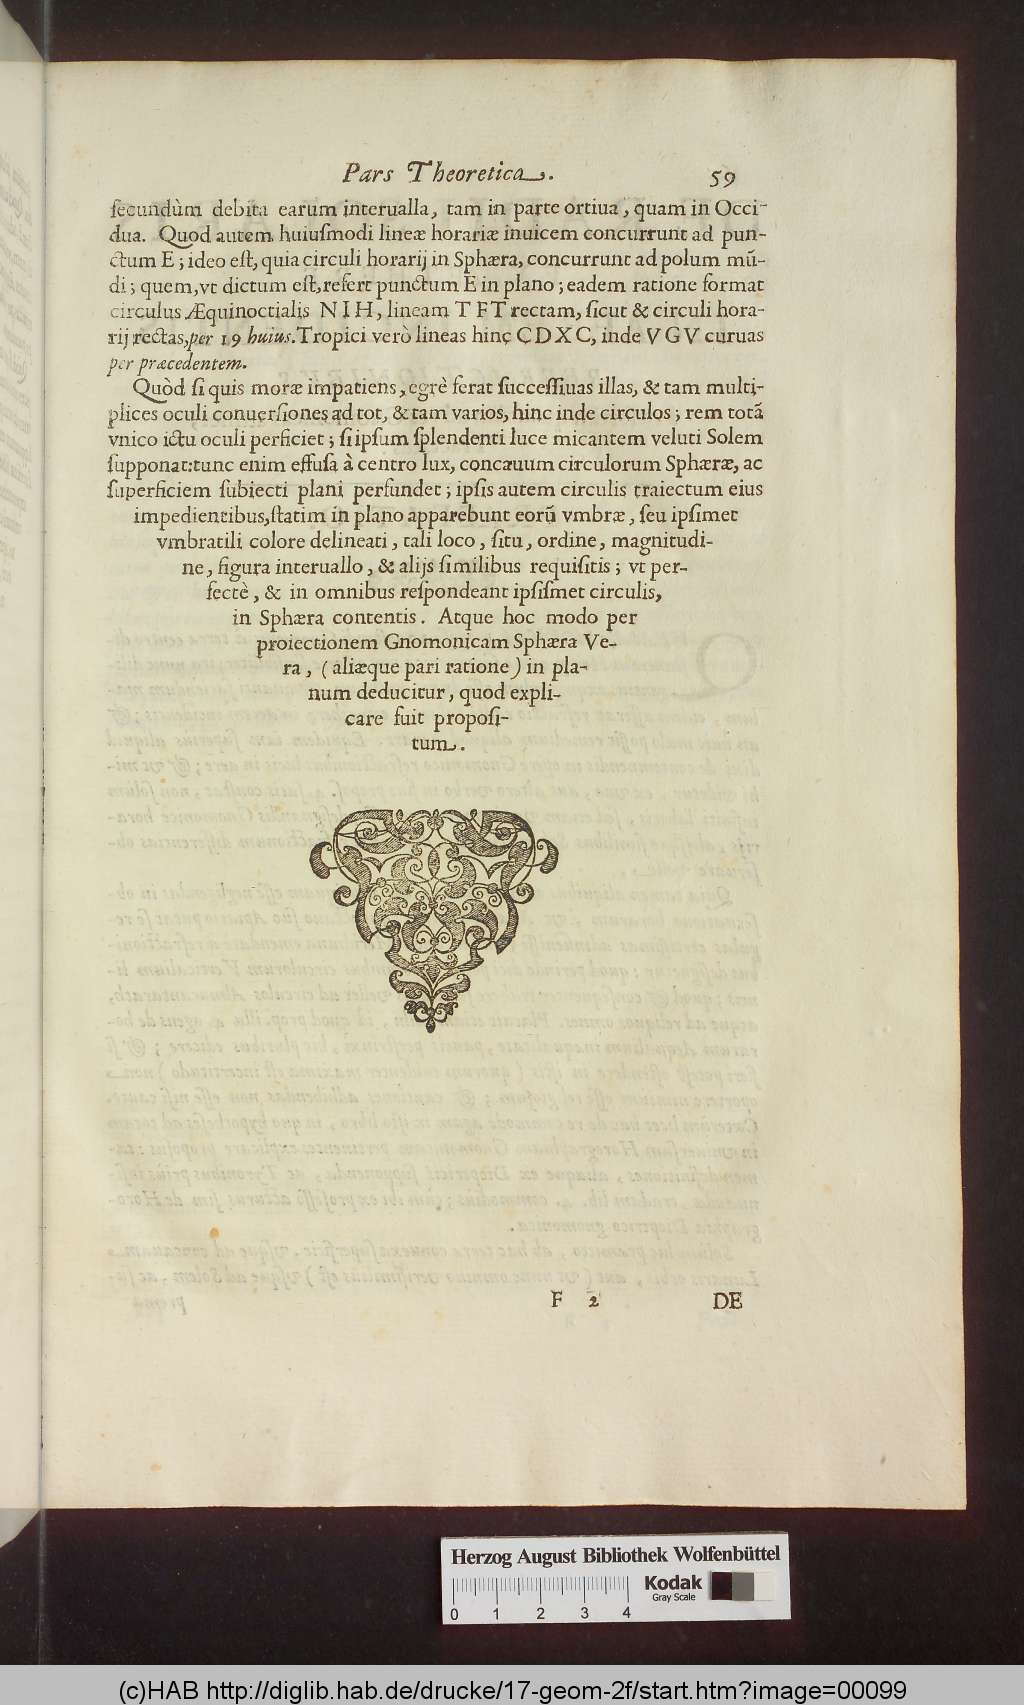 Pars Theoretica. 59
ſecundùm debita earum interualla, tam in parte ortiua, quam in Occi-
dua. Quod autem huiuſmodi lineæ horariæ inuicem concurrunt ad pun-
ctum E; ideo eſt, quia circuli horarij in Sphæra, concurrunt ad polum mũ-
di; quem, vt dictum eſt, refert punctum E in plano; eadem ratione format
circulus Æquinoctialis N I H, lineam T F T rectam, ſicut & circuli hora-
rij rectas, per 19 huius. Tropici verò lineas hinc C D X C, inde V G V curuas
per præcedentem.
Quòd ſi quis moræ impatiens, egrè ferat ſucceſſiuas illas, & tam multi-
plices oculi conuerſiones ad tot, & tam varios, hinc inde circulos; rem totã
vnico ictu oculi perficiet; ſi ipſum ſplendenti luce micantem veluti Solem
ſupponat: tunc enim effuſa à centro lux, concauum circulorum Sphæræ, ac
ſuperficiem ſubiecti plani perfundet; ipſis autem circulis traiectum eius
impedientibus, ſtatim in plano apparebunt eorũ vmbræ, ſeu ipſimet
vmbratili colore delineati, tali loco, ſitu, ordine, magnitudi-
ne, figura interuallo, & alijs ſimilibus requiſitis; vt per-
fectè, & in omnibus reſpondeant ipſiſmet circulis,
in Sphæra contentis. Atque hoc modo per
proiectionem Gnomonicam Sphæra Ve-
ra, (aliæque pari ratione) in pla-
num deducitur, quod expli-
care fuit propoſi-
tum.
F 2 DE
Herzog August Bibliothek Wolfenbüttel
Kodak
Gray Scale
0 1 2 3 4
(c)HAB http://diglib.hab.de/drucke/17-geom-2f/start.htm?image=00099